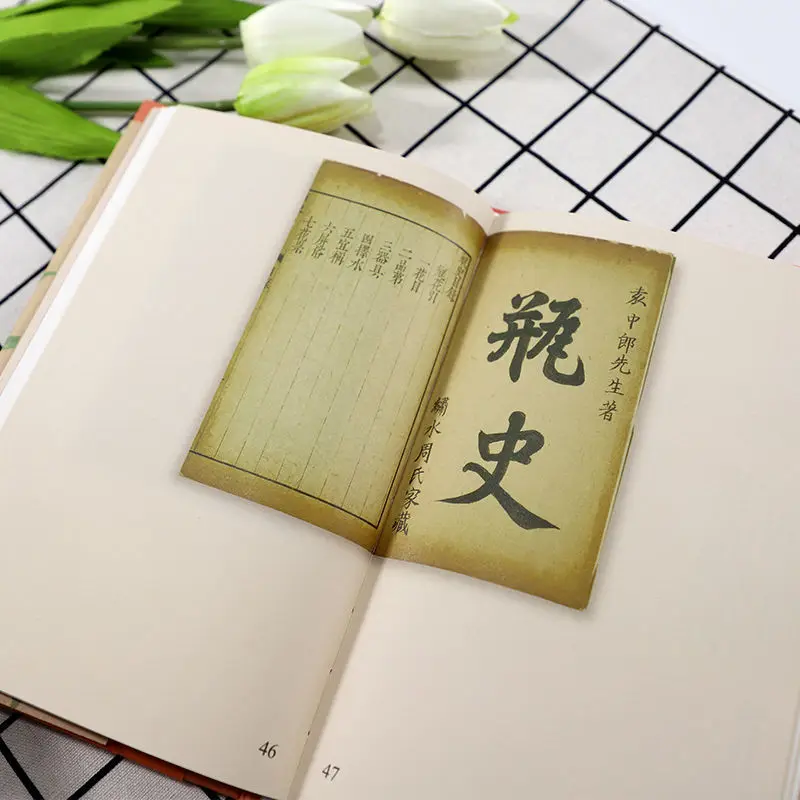 袁中郎先生著
瓶史
繡水周氏家藏
一花目
二品第
三器具
四擇水
五宜稱
六屏俗
七花祟
46
47